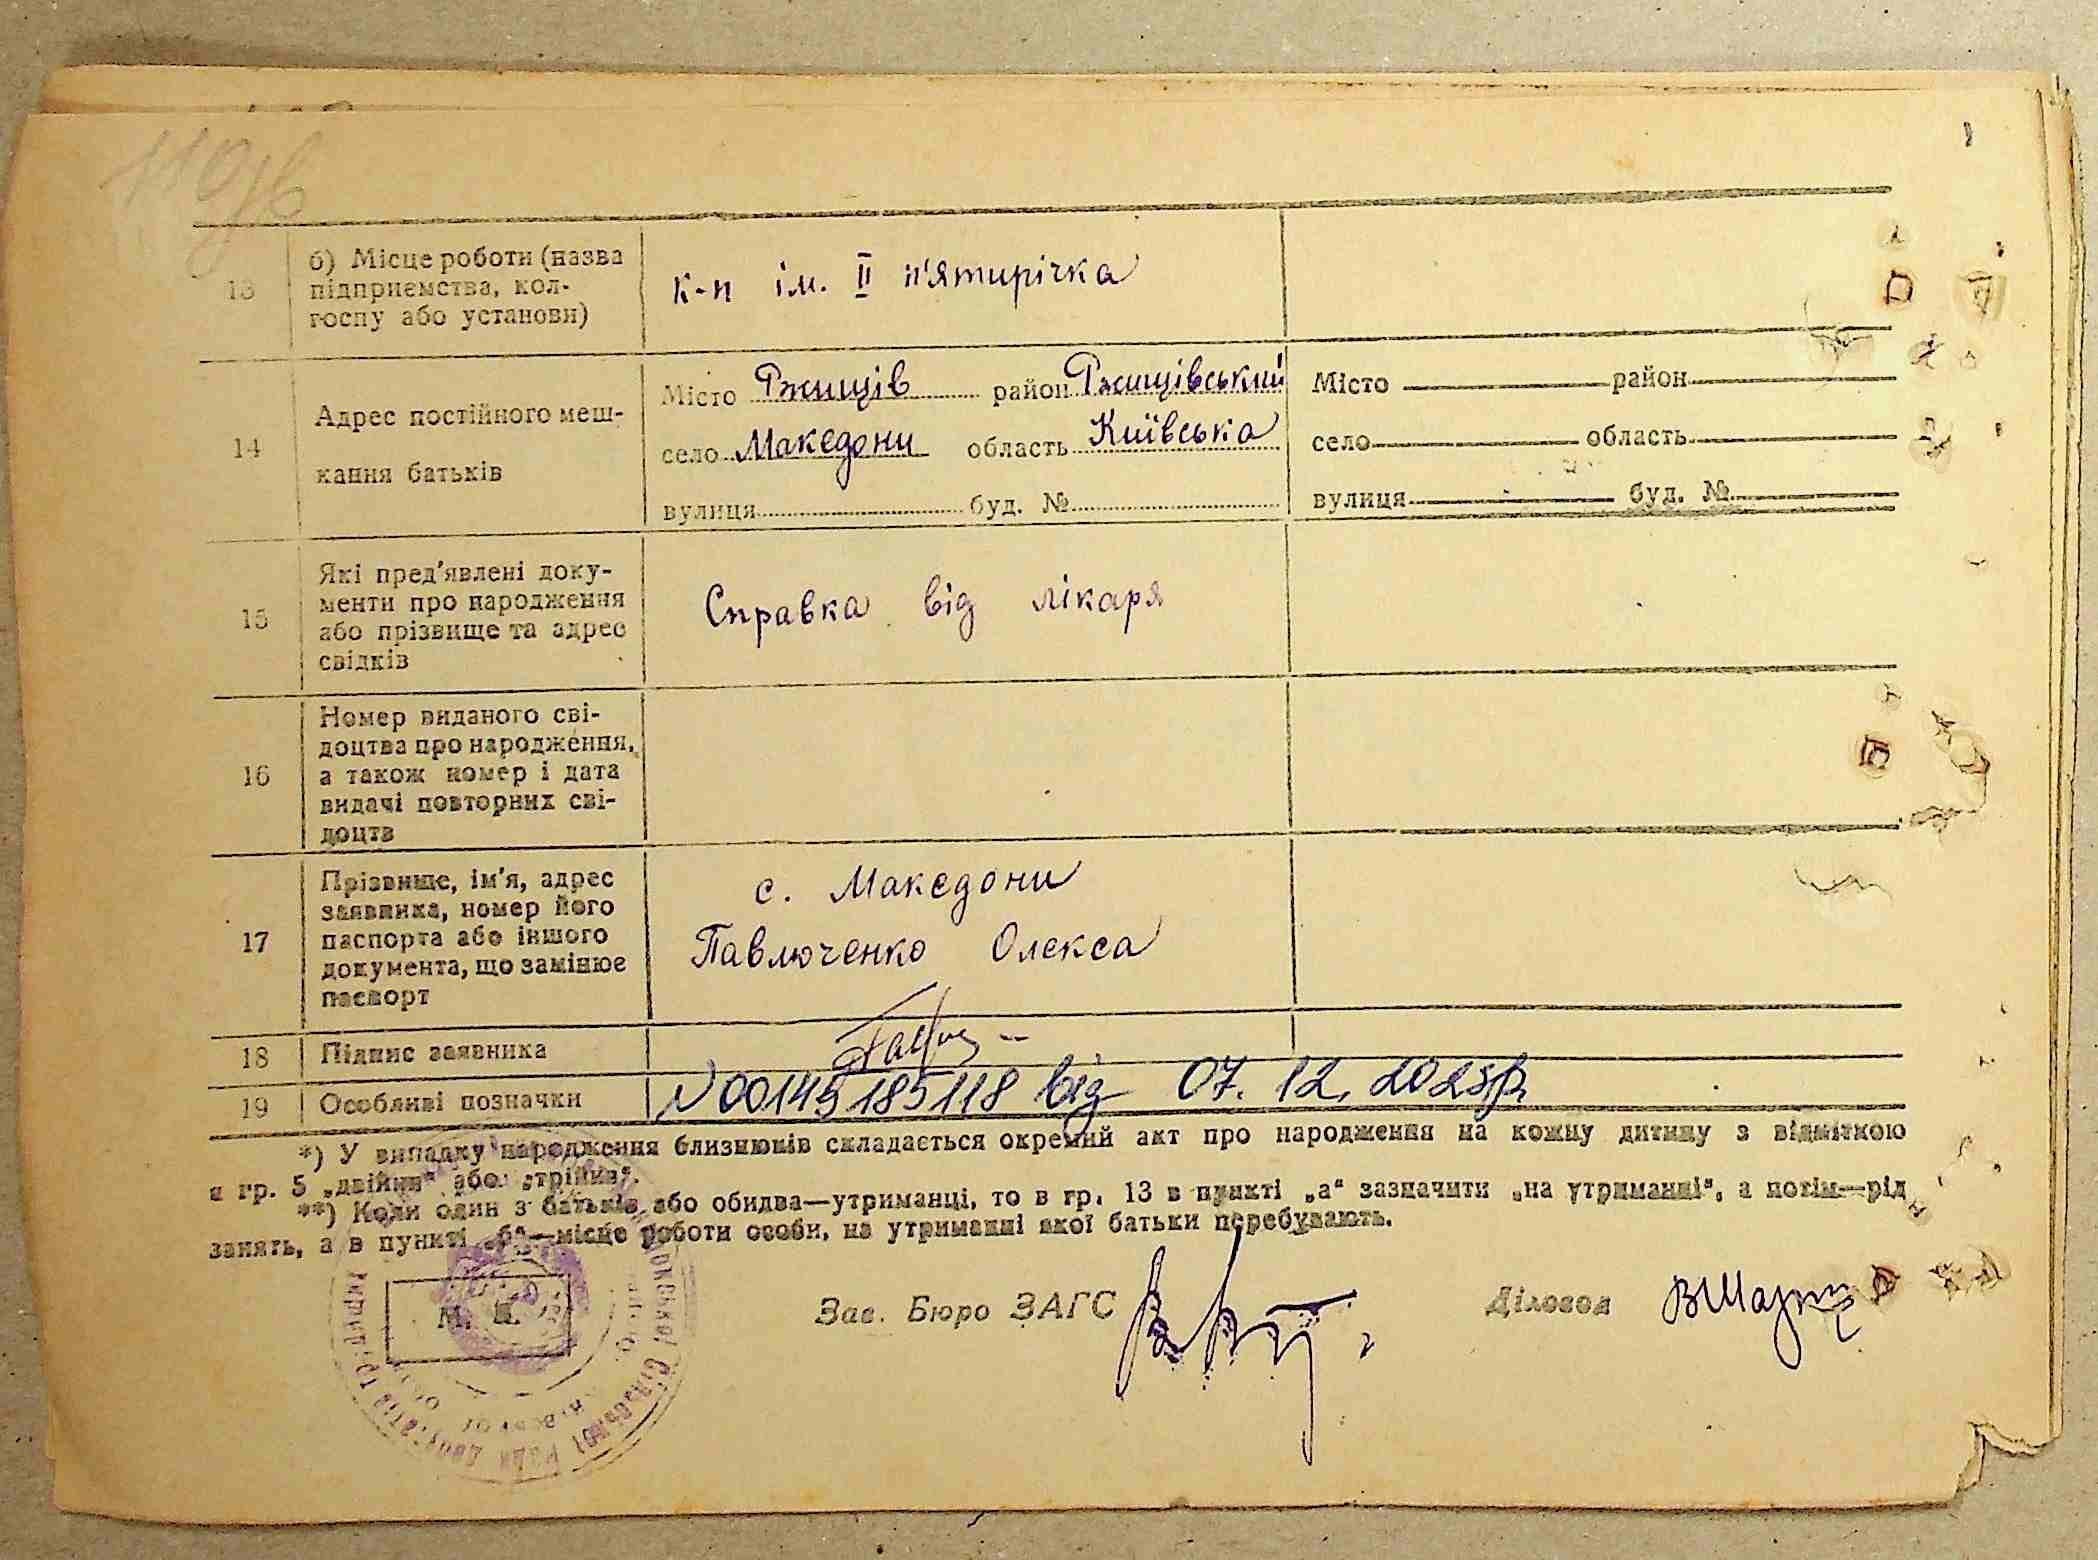 110зв
13
б) Місце роботи (назва
підприємства, кол-
госпу або установи)
к-п ім. ІІ п'ятирічка
14
Адрес постійного меш-
кання батьків
Місто Ржищів район Ржищівський
село Македони область Київська
вулиця буд. №
Місто район
село область
вулиця буд. №
15
Які пред'явлені доку-
менти про народження
або прізвище та адрес
свідків
Справка від лікаря
16
Номер виданого сві-
доцтва про народження,
а також номер і дата
видачі повторних сві-
доцтв
17
Прізвище, ім'я, адрес
заявника, номер його
паспорта або іншого
документа, що замінює
паспорт
с. Македони
Павлюченко Олекса
18
Підпис заявника
19
Особливі позначки
N 00149185118 від 07. 12. 2025р
*) У випадку народження близнюків складається окремий акт про народження на кожну дитину з відміткою
в гр. 5 „двійня" або „трійня".
**) Коли один з батьків або обидва—утриманці, то в гр. 13 в пункті „а" зазначити „на утриманні", а потім—рід
занять, а в пункті „б"—місце роботи особи, на утриманні якої батьки перебувають.
М. П.
Зав. Бюро ЗАГС
Діловод